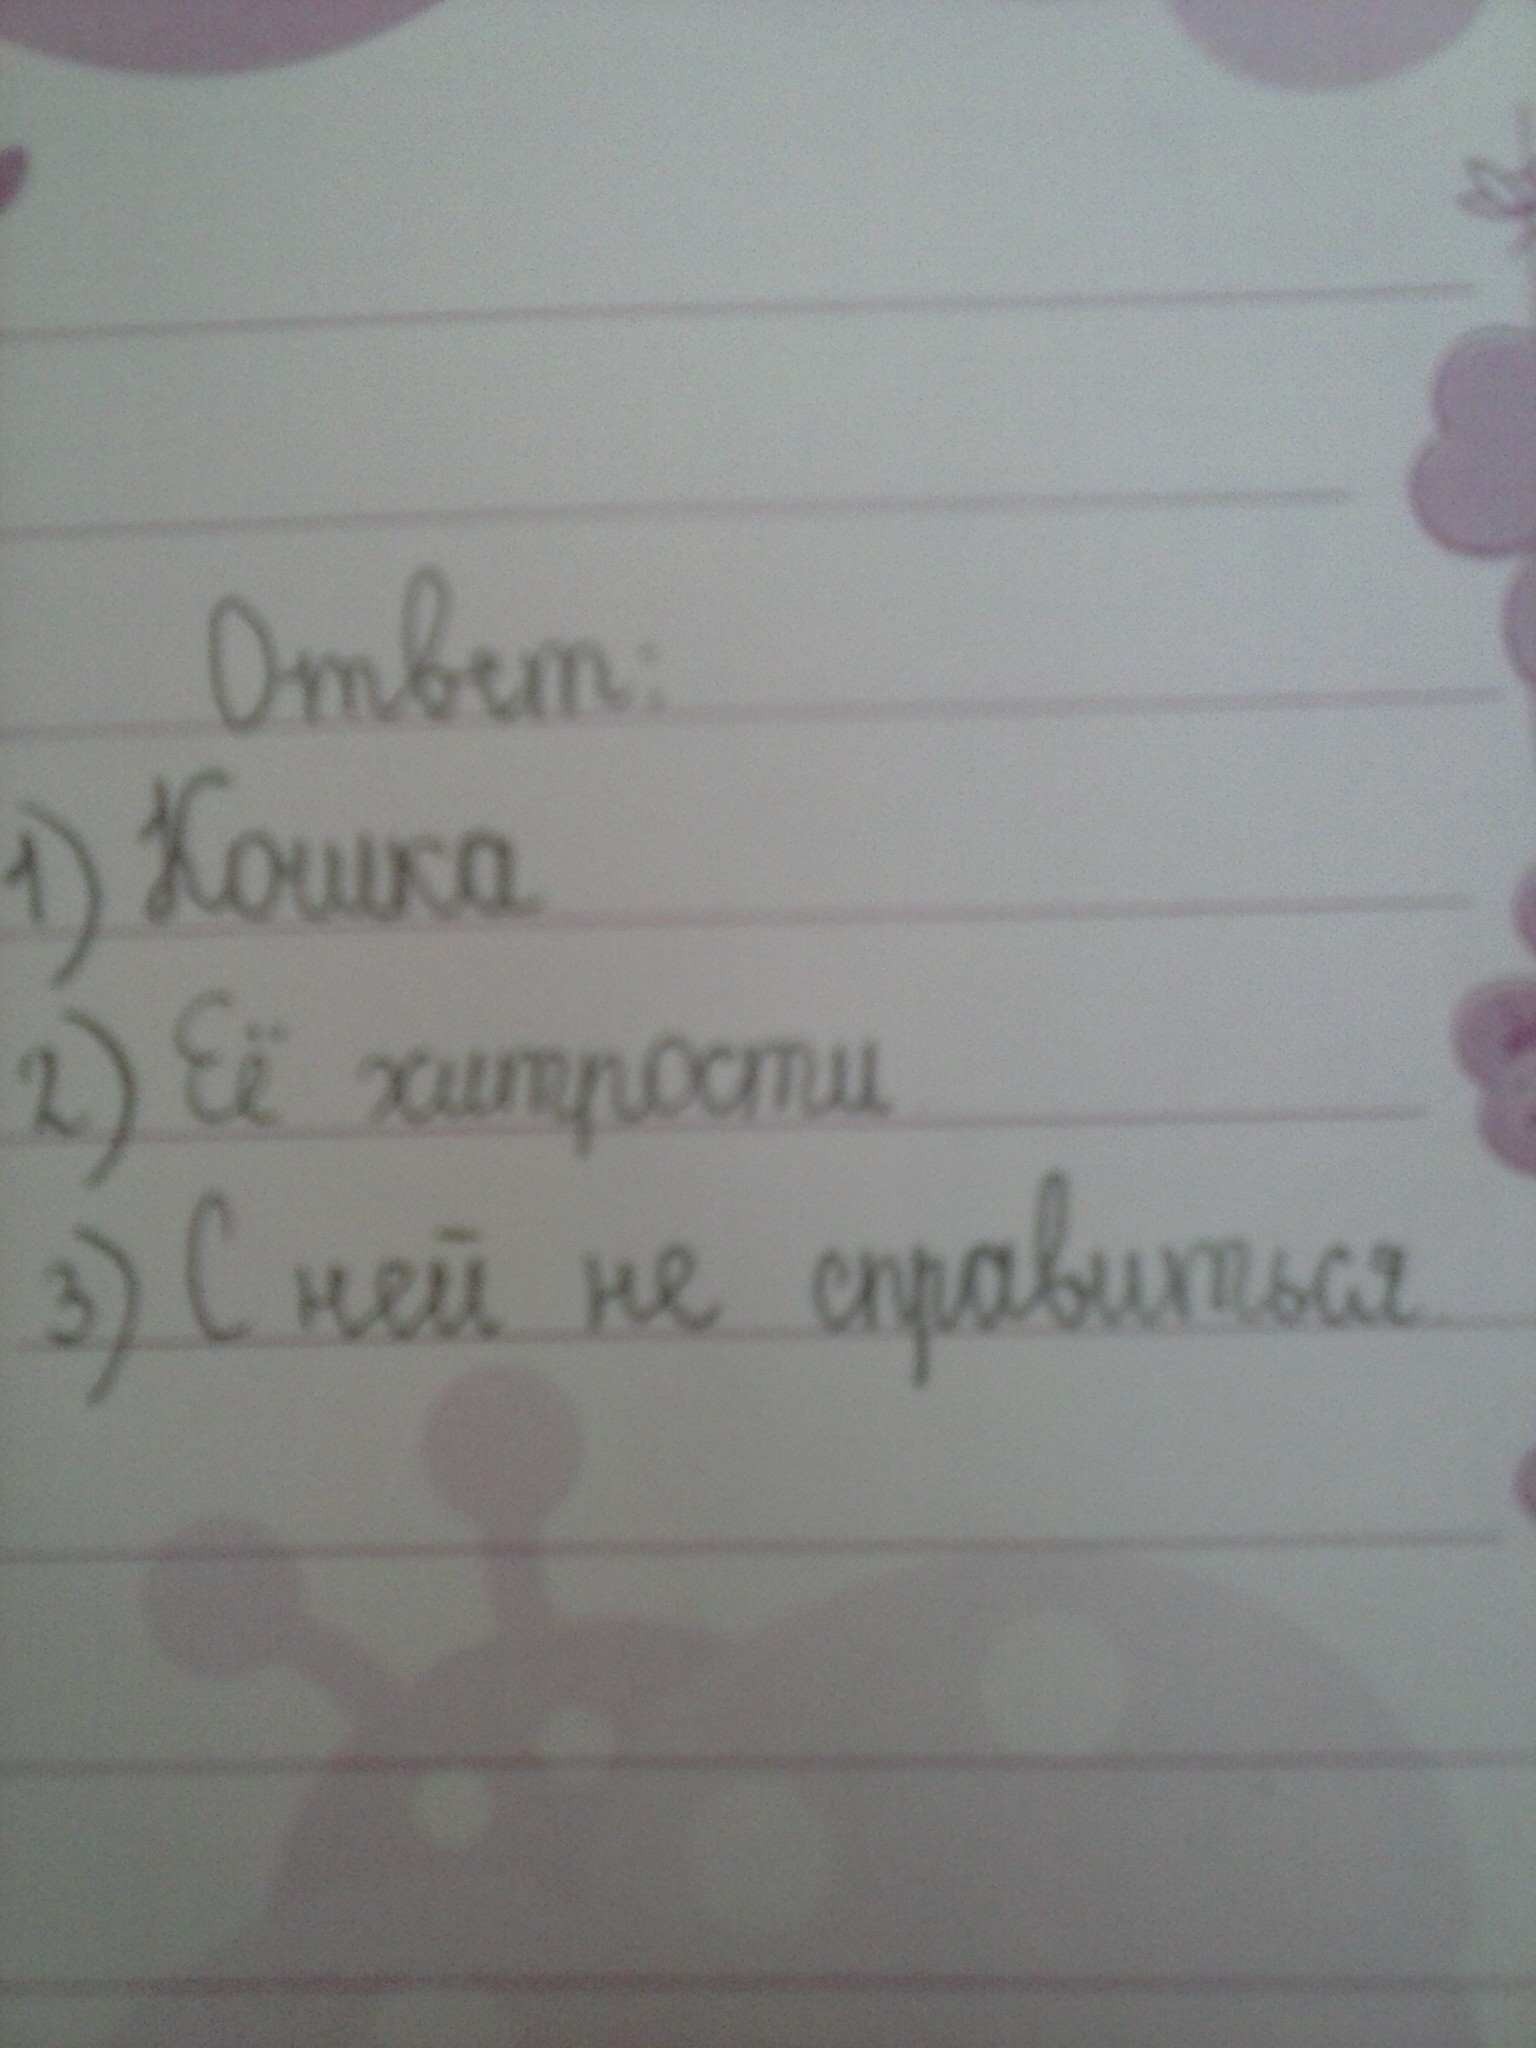 Ответ:
1) Кошка
2) Её хитрости
3) С ней не справиться